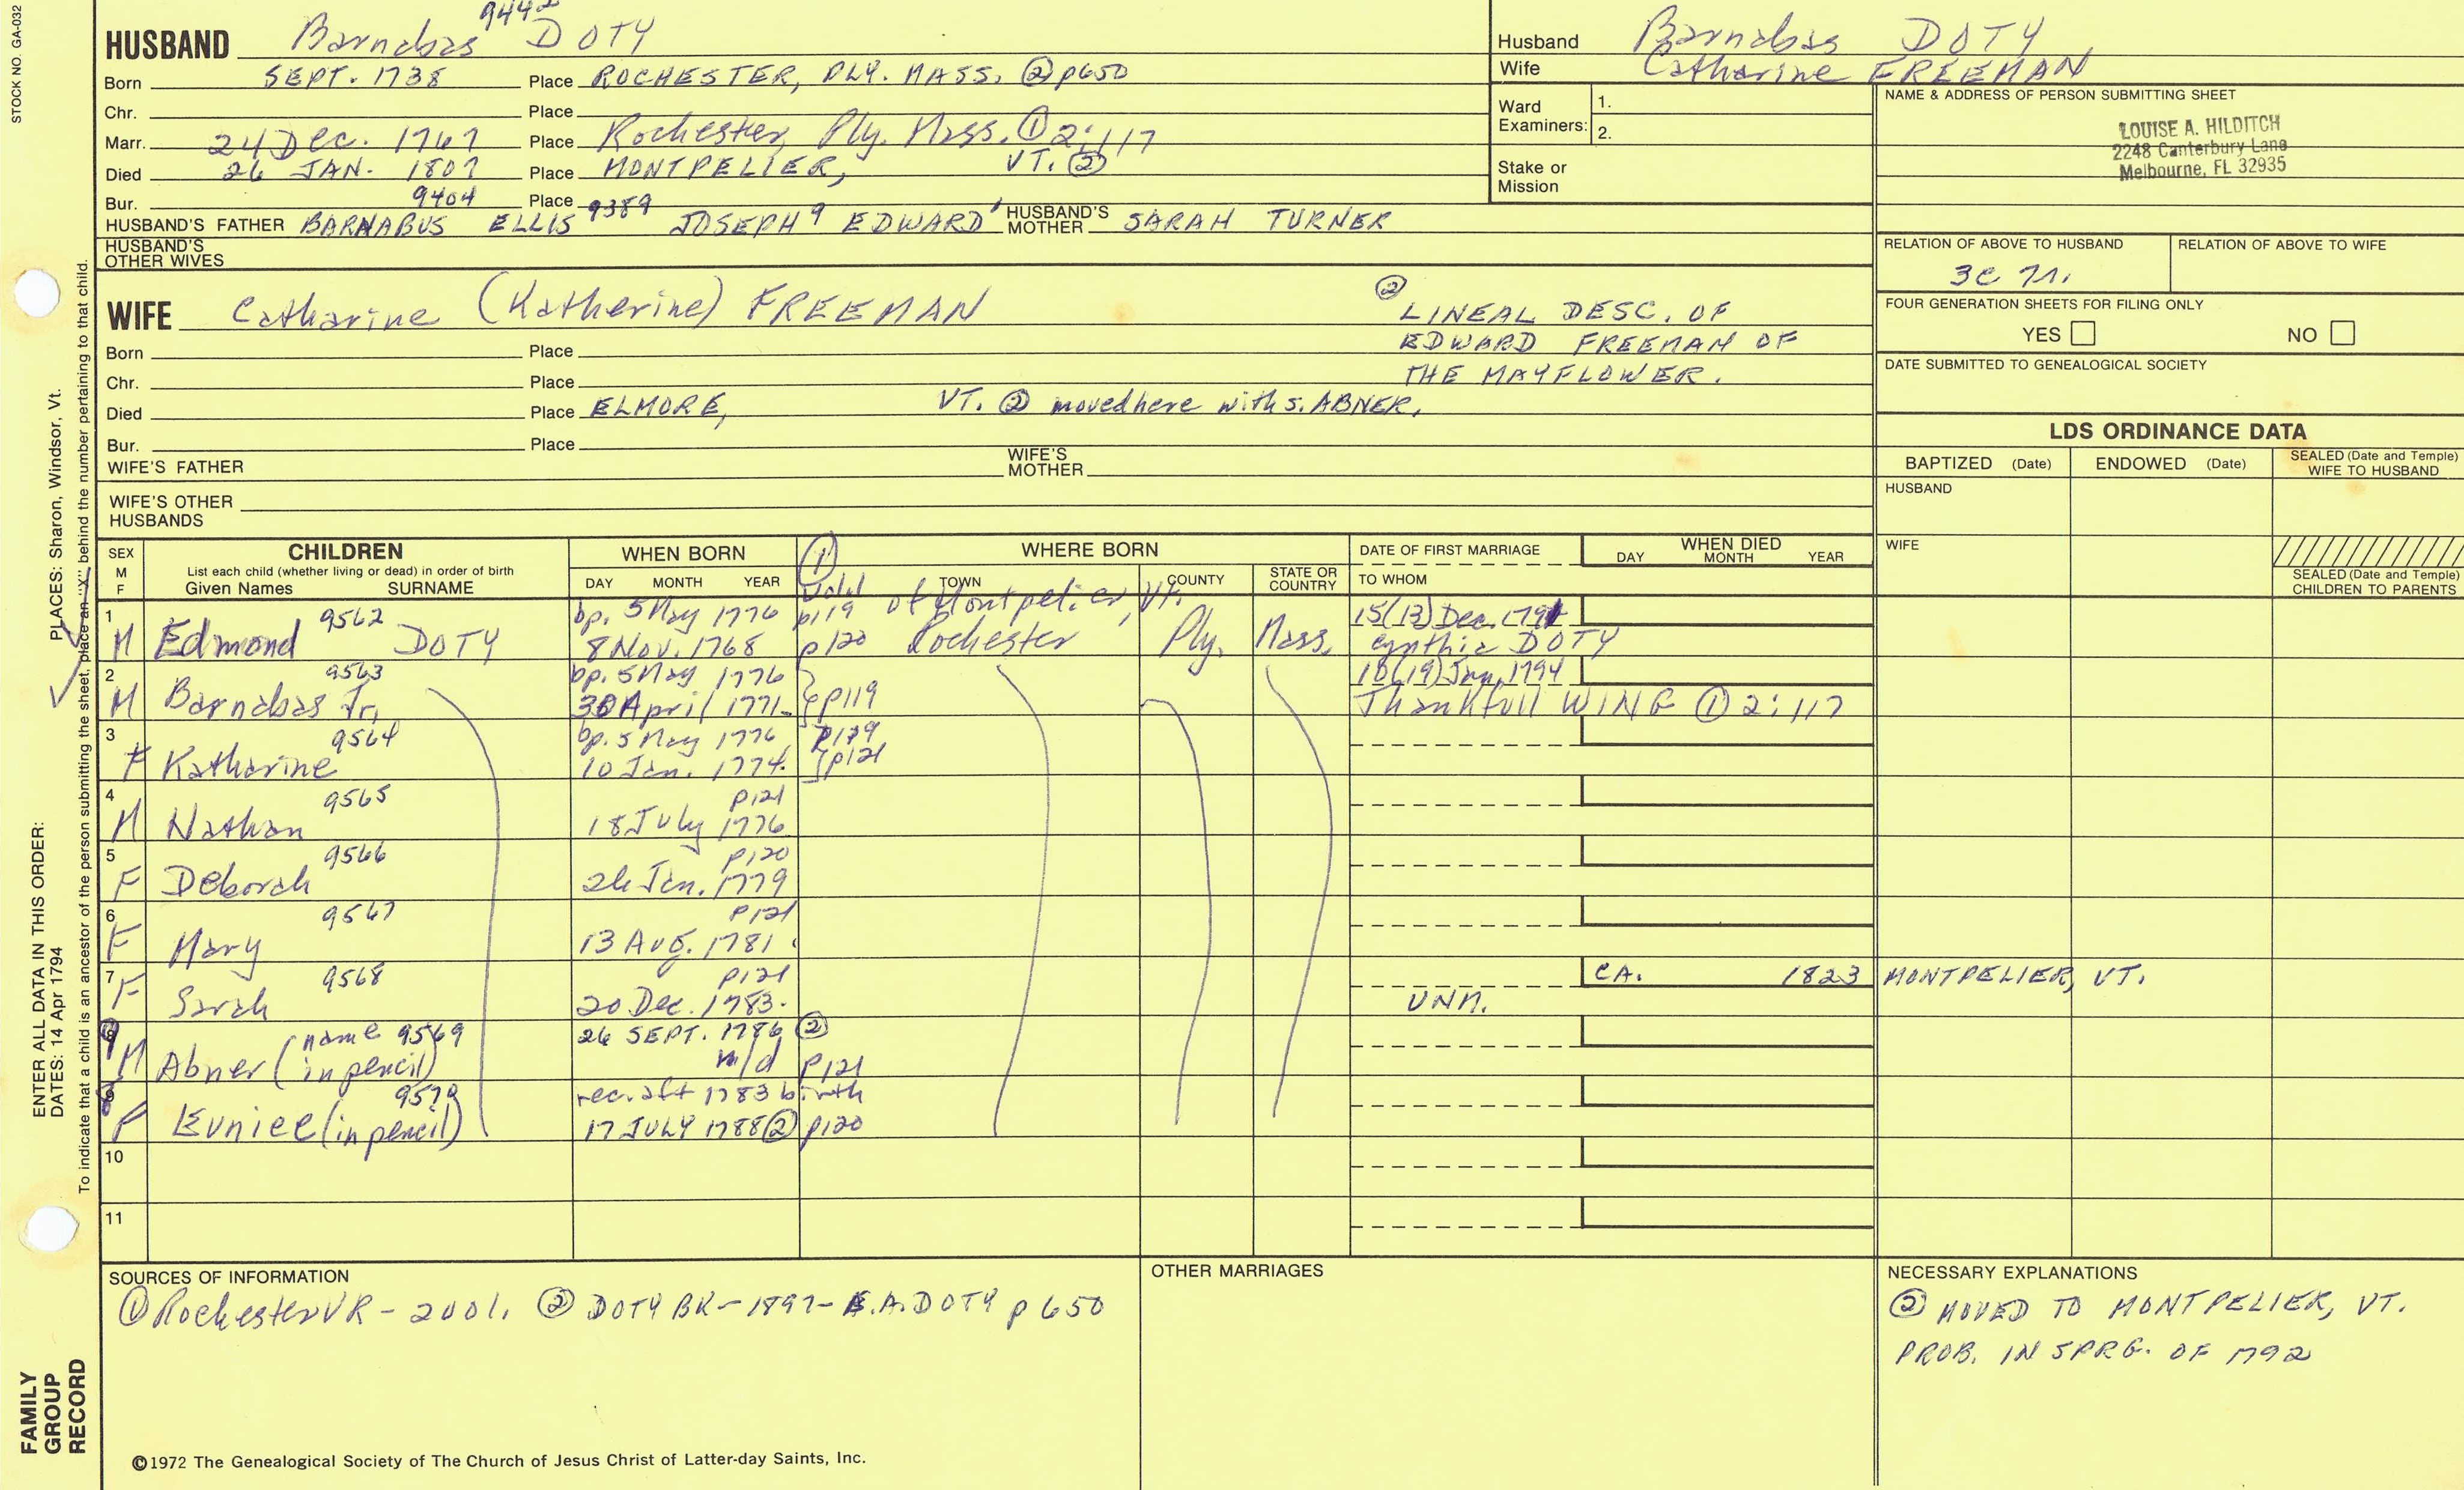 STOCK NO. GA-032
9442
HUSBAND Barnabas DOTY
Born SEPT. 1738 Place ROCHESTER, PLY. MASS. ② p650
Chr. Place
Marr. 24 Dec. 1767 Place Rochester, Ply. Mass. ① 2:117
Died 26 JAN. 1807 Place MONTPELIER, VT. ②
Bur. Place
9404 9389
HUSBAND'S FATHER BARNABUS ELLIS JOSEPH EDWARD HUSBAND'S MOTHER SARAH TURNER
HUSBAND'S OTHER WIVES
Husband Barnabas DOTY
Wife Catharine FREEMAN
Ward Examiners: 1.
2.
Stake or Mission
NAME & ADDRESS OF PERSON SUBMITTING SHEET
LOUISE A. HILDITCH
2248 Canterbury Lane
Melbourne, FL 32935
RELATION OF ABOVE TO HUSBAND RELATION OF ABOVE TO WIFE
FOUR GENERATION SHEETS FOR FILING ONLY
YES NO
DATE SUBMITTED TO GENEALOGICAL SOCIETY
WIFE Catharine (Katherine) FREEMAN
②
LINEAL DESC. OF
EDWARD FREEMAN OF
THE MAYFLOWER.
Born Place
Chr. Place
Died Place ELMORE, VT. ② moved here with s. ABNER.
Bur. Place
WIFE'S FATHER WIFE'S MOTHER
WIFE'S OTHER HUSBANDS
LDS ORDINANCE DATA
BAPTIZED (Date) ENDOWED (Date) SEALED (Date and Temple) WIFE TO HUSBAND
HUSBAND
WIFE
SEALED (Date and Temple) CHILDREN TO PARENTS
SEX M F
CHILDREN
List each child (whether living or dead) in order of birth
Given Names SURNAME
WHEN BORN
DAY MONTH YEAR
① WHERE BORN
TOWN COUNTY STATE OR COUNTRY
DATE OF FIRST MARRIAGE
TO WHOM
WHEN DIED
DAY MONTH YEAR
1 9562 bp. 5 May 1776 p119 of Montpelier, Vt. 15(13) Dec. 1791
M Edmond DOTY 8 Nov. 1768 p120 Rochester Ply. Mass. Cynthia DOTY
2 9563 bp. 5 May 1776 18(19) Jan. 1794
M Barnabas Jr. 30 April 1771 p119 Thankfull WING ① 2:117
3 9564 bp. 5 May 1776 p119
F Katharine 10 Jan. 1774 p121
4 9565 p121
M Nathan 18 July 1776
5 9566 p120
F Deborah 26 Jan. 1779
6 9567 p121
F Mary 13 Aug. 1781
7 9568 p121 CA. 1823 MONTPELIER, VT.
F Sarah 20 Dec. 1783. UNM.
9569 26 SEPT. 1786 ②
M Abner (name in pencil) n/d p121
rec. aft 1783 birth
F Eunice (in pencil) 17 JULY 1788 ② p120
10
11
SOURCES OF INFORMATION
① Rochester VR - 2001. ② DOTY BK - 1897 - E.A. DOTY p 650
OTHER MARRIAGES
NECESSARY EXPLANATIONS
② MOVED TO MONTPELIER, VT.
PROB. IN SPRG. OF 1792
©1972 The Genealogical Society of The Church of Jesus Christ of Latter-day Saints, Inc.
FAMILY GROUP RECORD
ENTER ALL DATA IN THIS ORDER:
DATES: 14 Apr 1794
PLACES: Sharon, Windsor, Vt.
To indicate that a child is an ancestor of the person submitting the sheet, place an "X" behind the number pertaining to that child.